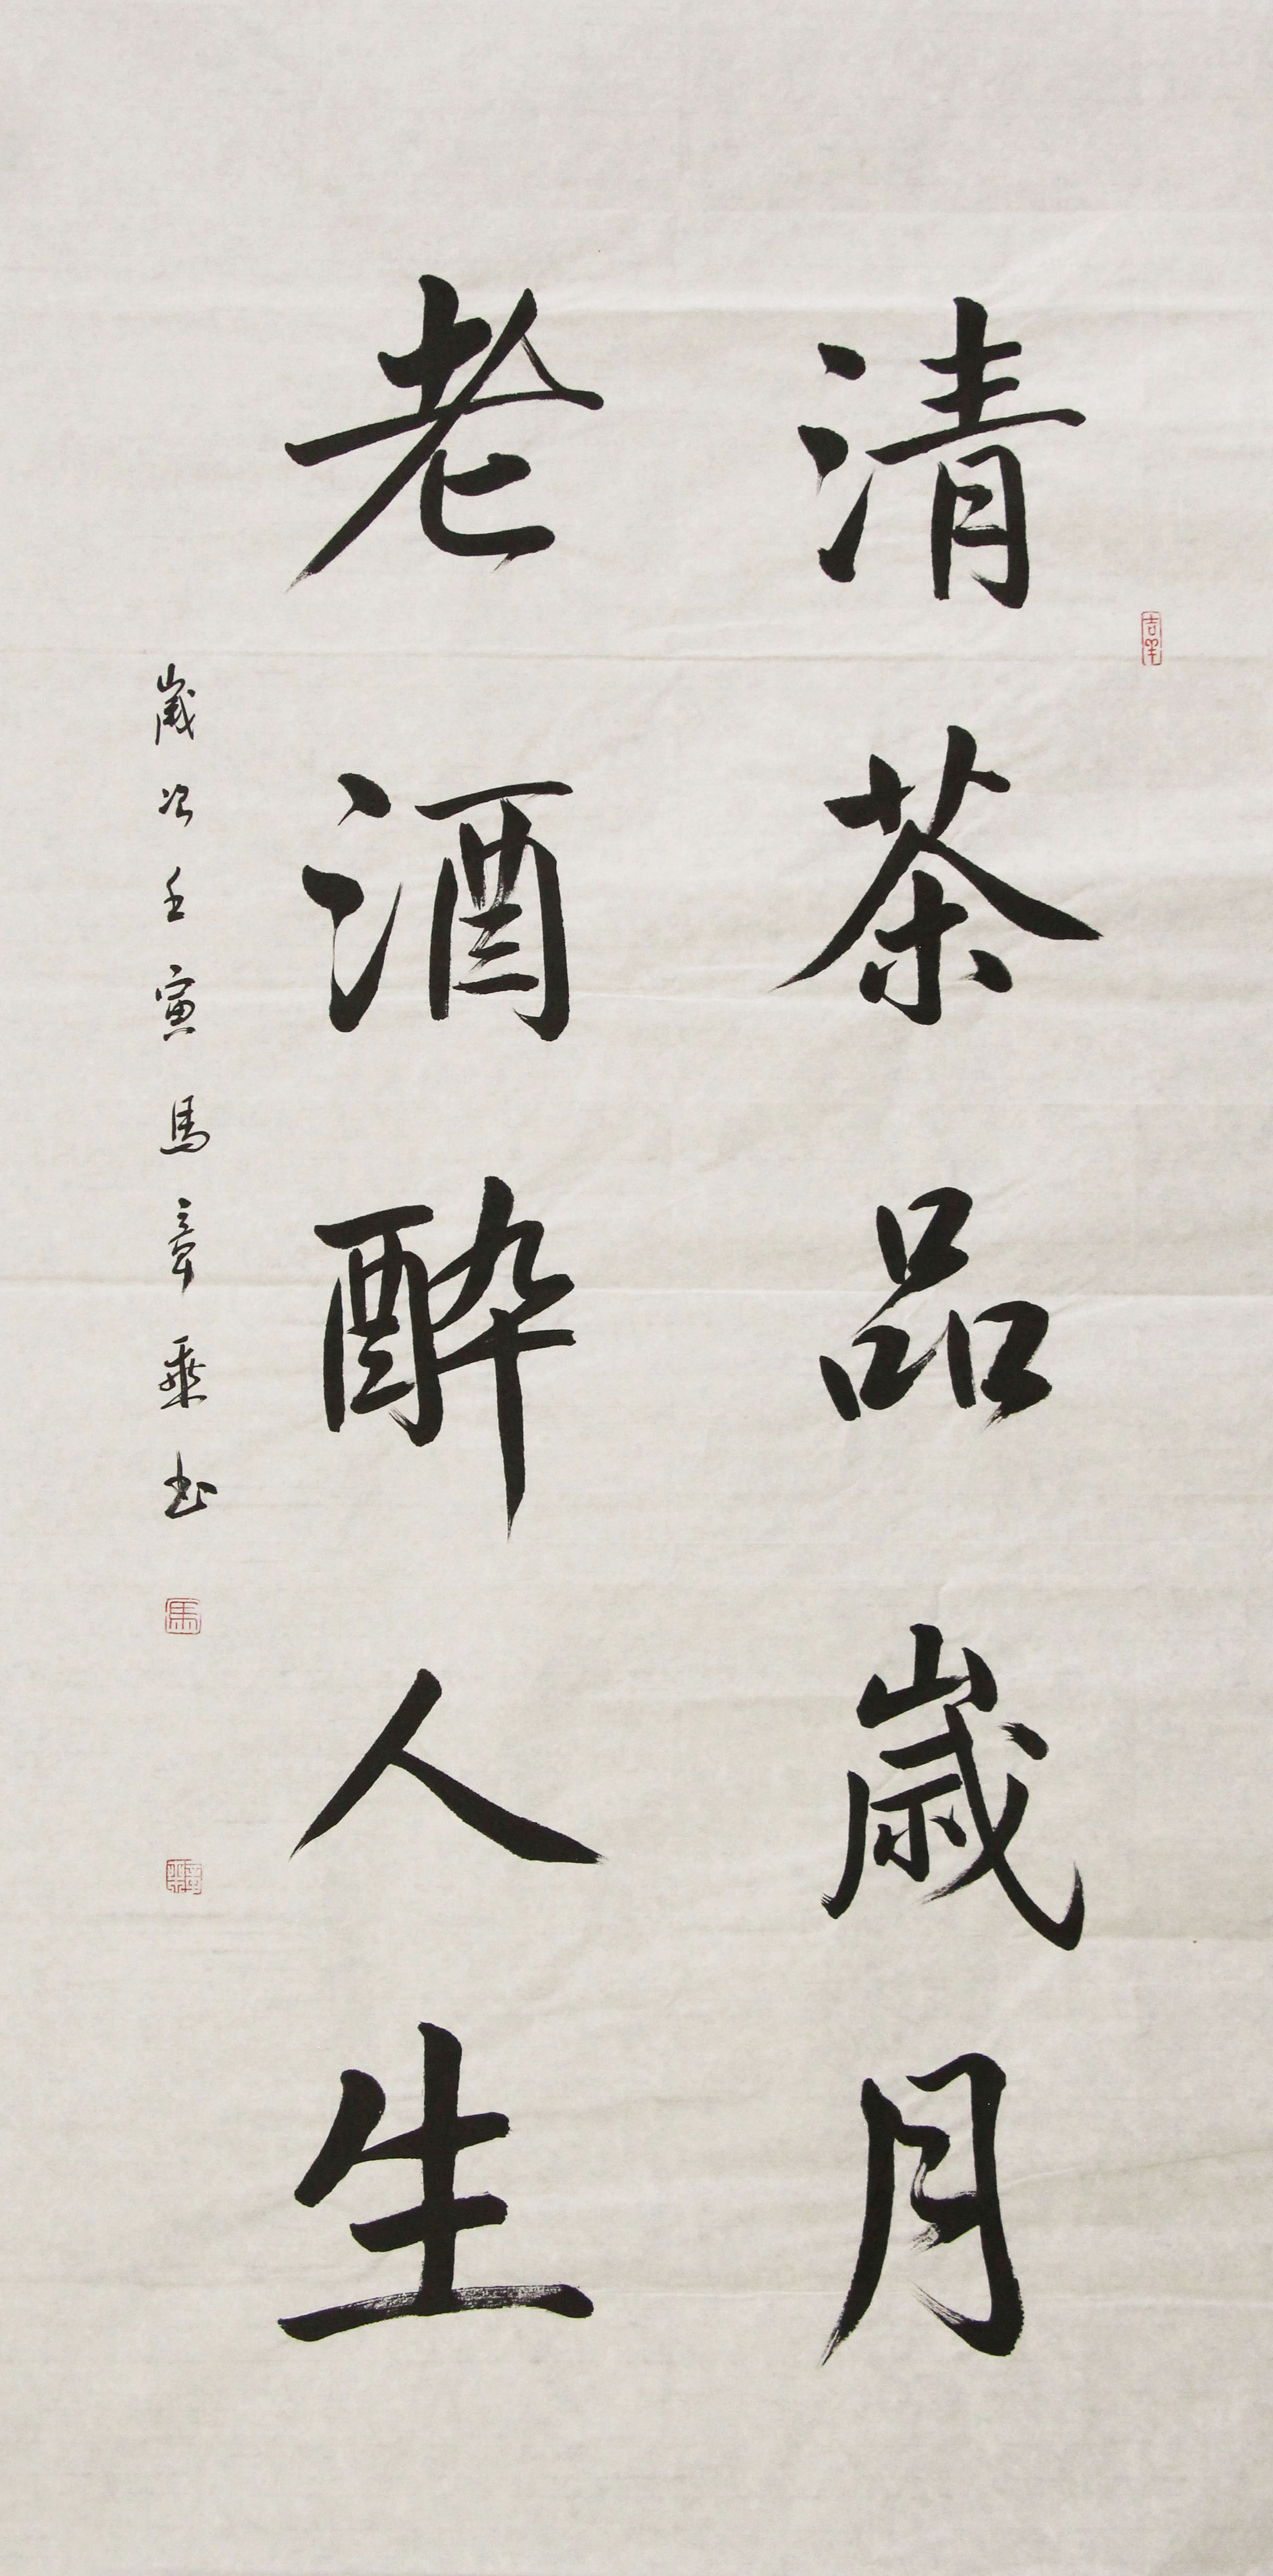 清茶品歲月
老酒醉人生
歲次壬寅馬章乘書
吉羊
馬